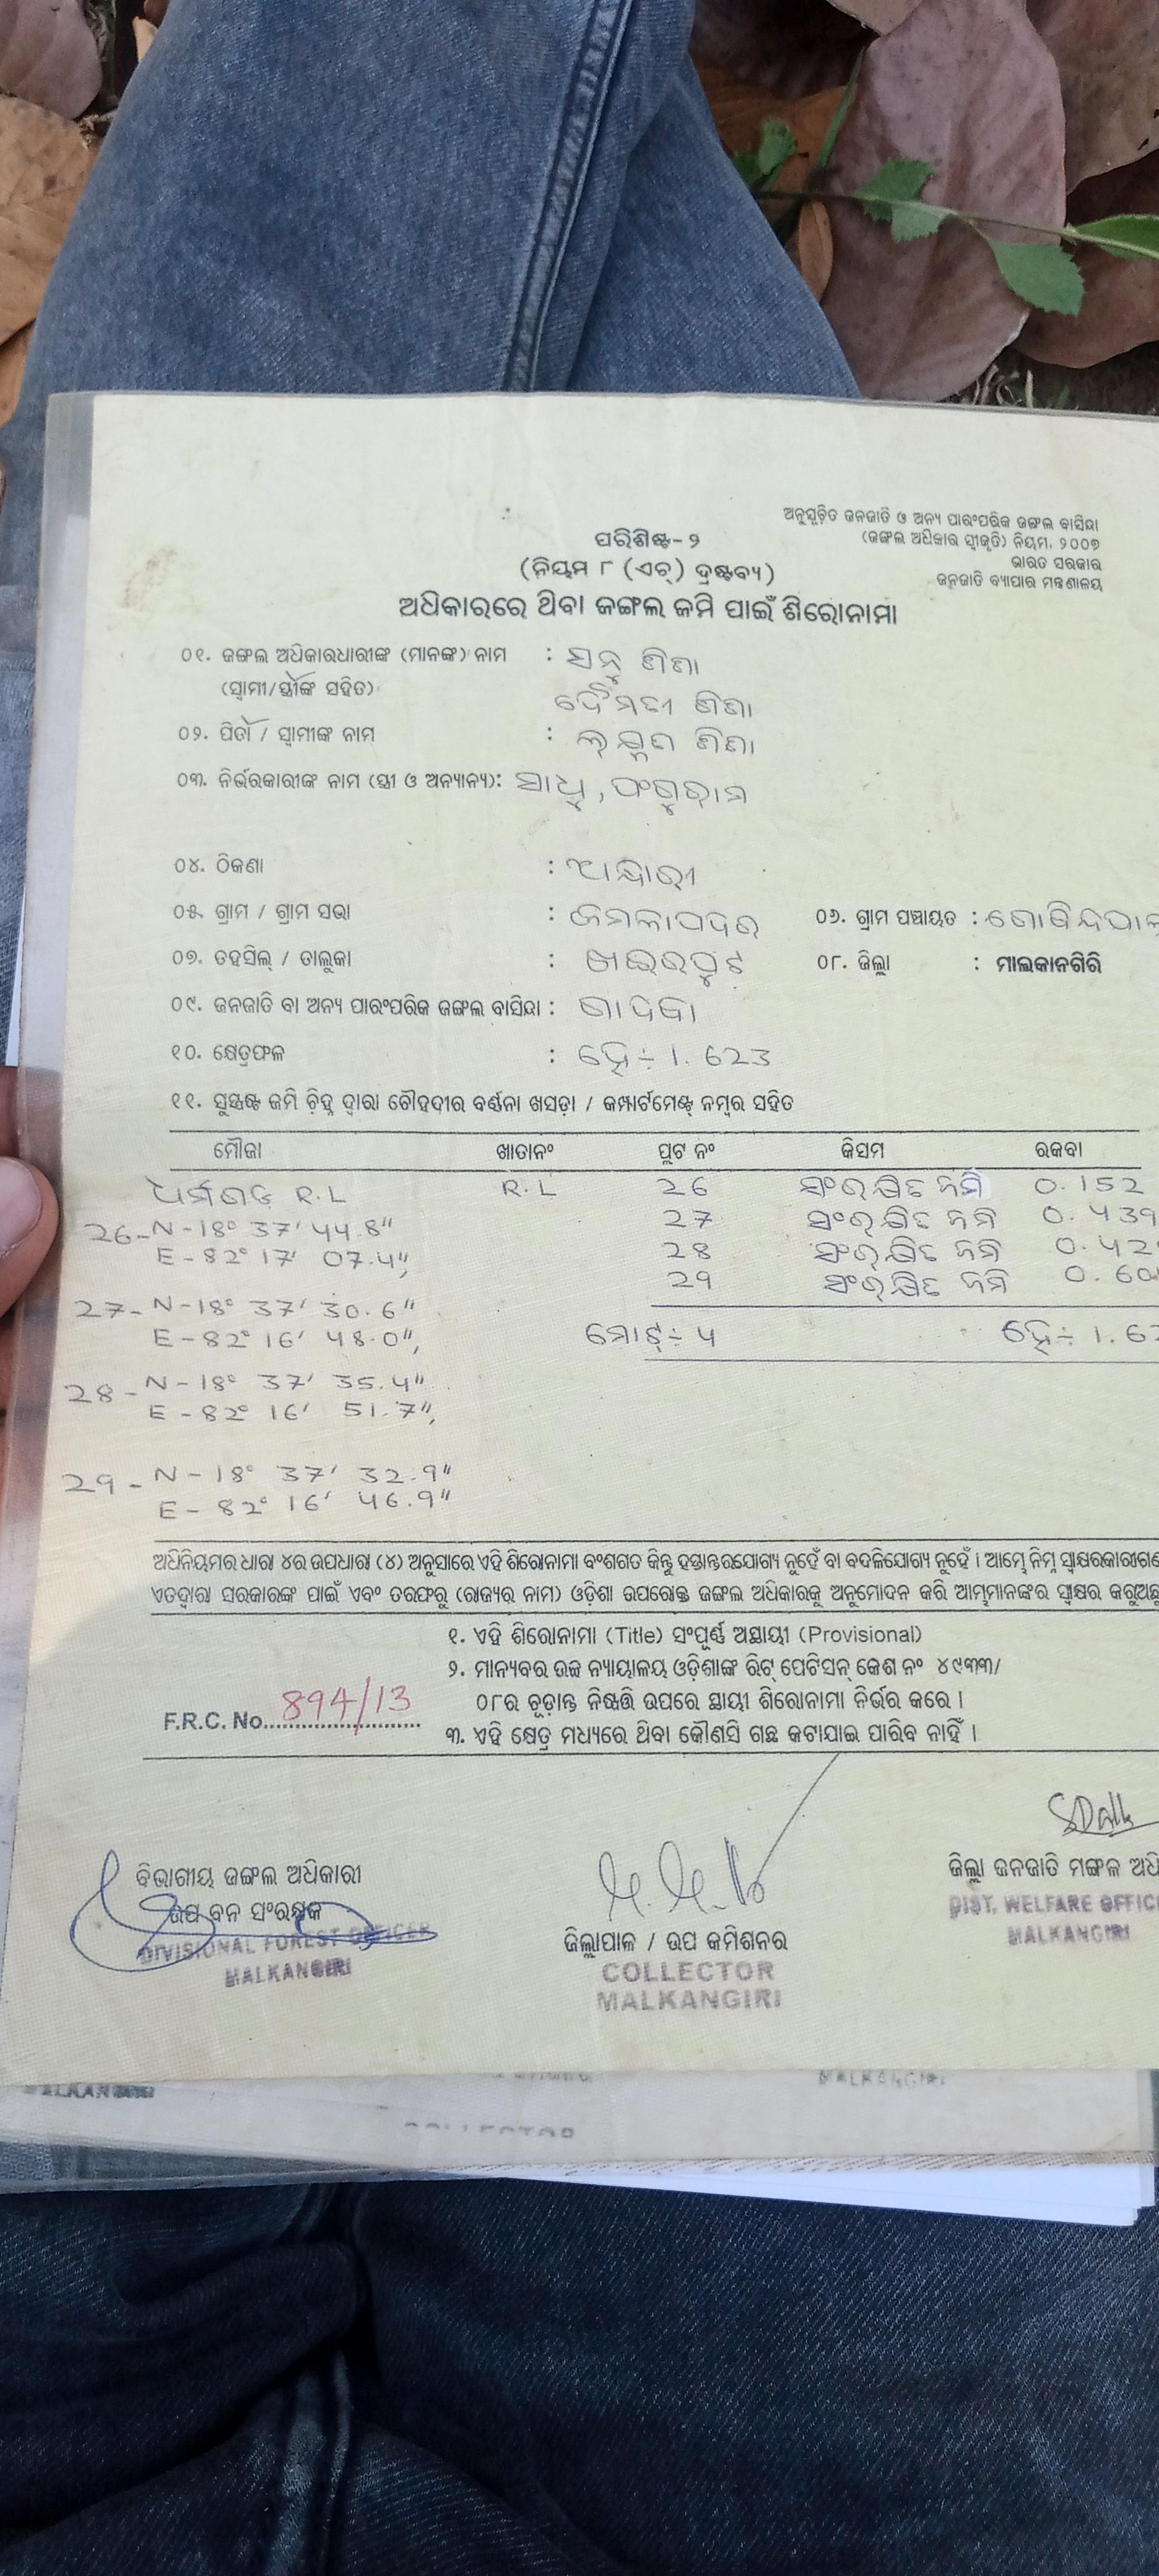 ଅନୁସୂଚିତ ଜନଜାତି ଓ ଅନ୍ୟ ପାରଂପରିକ ଜଙ୍ଗଲ ବାସିନ୍ଦା
(ଜଙ୍ଗଲ ଅଧିକାର ସ୍ୱୀକୃତି) ନିୟମ, ୨୦୦୭
ଭାରତ ସରକାର
ଜନଜାତି ବ୍ୟାପାର ମନ୍ତ୍ରଣାଳୟ
ପରିଶିଷ୍ଟ-୨
(ନିୟମ ୮ (ଏଚ୍) ଦ୍ରଷ୍ଟବ୍ୟ)
ଅଧିକାରରେ ଥିବା ଜଙ୍ଗଲ ଜମି ପାଇଁ ଶିରୋନାମା
୦୧. ଜଙ୍ଗଲ ଅଧିକାରଧାରୀଙ୍କ (ମାନଙ୍କ) ନାମ :
(ସ୍ୱାମୀ/ସ୍ତ୍ରୀଙ୍କ ସହିତ)
୦୨. ପିତା / ସ୍ୱାମୀଙ୍କ ନାମ :
୦୩. ନିର୍ଭରକାରୀଙ୍କ ନାମ (ସ୍ତ୍ରୀ ଓ ଅନ୍ୟାନ୍ୟ): ସାଧୁ,
୦୪. ଠିକଣା :
୦୫. ଗ୍ରାମ / ଗ୍ରାମ ସଭା : ୦୬. ଗ୍ରାମ ପଞ୍ଚାୟତ :
୦୭. ତହସିଲ୍ / ତାଲୁକା : ଖଇରପୁଟ ୦୮. ଜିଲ୍ଲା : ମାଲକାନଗିରି
୦୯. ଜନଜାତି ବା ଅନ୍ୟ ପାରଂପରିକ ଜଙ୍ଗଲ ବାସିନ୍ଦା : ଗାଦବା
୧୦. କ୍ଷେତ୍ରଫଳ : ହେ÷ 1.623
୧୧. ସୁସ୍ପଷ୍ଟ ଜମି ଚିହ୍ନ ଦ୍ୱାରା ଚୌହଦୀର ବର୍ଣ୍ଣନା ଖସଡ଼ା / କମ୍ପାର୍ଟମେଣ୍ଟ୍ ନମ୍ବର ସହିତ
ମୌଜା ଖାତାନଂ ପ୍ଲଟ ନଂ କିସମ ରକବା
ଧର୍ମଗଡ R.L R.L 26 ସଂରକ୍ଷିତ ଜମି 0.152
26- N-18° 37' 44.8" 27 ସଂରକ୍ଷିତ ଜମି 0.439
E-82° 17' 07.4", 28 ସଂରକ୍ଷିତ ଜମି 0.42
29 ସଂରକ୍ଷିତ ଜମି 0.60
27- N-18° 37' 30.6"
E-82° 16' 48.0", ମୋଟ୍÷ 4 ହେ÷ 1.62
28- N-18° 37' 35.4"
E-82° 16' 51.7",
29- N-18° 37' 32.9"
E-82° 16' 46.9"
ଅଧିନିୟମର ଧାରା ୪ର ଉପଧାରା (୪) ଅନୁସାରେ ଏହି ଶିରୋନାମା ବଂଶଗତ କିନ୍ତୁ ହସ୍ତାନ୍ତରଯୋଗ୍ୟ ନୁହେଁ ବା ବଦଳିଯୋଗ୍ୟ ନୁହେଁ । ଆମ୍ଭେ ନିମ୍ନ ସ୍ୱାକ୍ଷରକାରୀଗଣ
ଏତଦ୍ୱାରା ସରକାରଙ୍କ ପାଇଁ ଏବଂ ତରଫରୁ (ରାଜ୍ୟର ନାମ) ଓଡ଼ିଶା ଉପରୋକ୍ତ ଜଙ୍ଗଲ ଅଧିକାରକୁ ଅନୁମୋଦନ କରି ଆମ୍ଭମାନଙ୍କର ସ୍ୱାକ୍ଷର କରୁଅଛୁ
୧. ଏହି ଶିରୋନାମା (Title) ସଂପୂର୍ଣ୍ଣ ଅସ୍ଥାୟୀ (Provisional)
୨. ମାନ୍ୟବର ଉଚ୍ଚ ନ୍ୟାୟାଳୟ ଓଡ଼ିଶାଙ୍କ ରିଟ୍ ପେଟିସନ୍ କେଶ ନଂ ୪୯୩୩/
୦୮ର ଚୂଡ଼ାନ୍ତ ନିଷ୍ପତ୍ତି ଉପରେ ସ୍ଥାୟୀ ଶିରୋନାମା ନିର୍ଭର କରେ ।
F.R.C. No. 894/13
୩. ଏହି କ୍ଷେତ୍ର ମଧ୍ୟରେ ଥିବା କୌଣସି ଗଛ କଟାଯାଇ ପାରିବ ନାହିଁ ।
ବିଭାଗୀୟ ଜଙ୍ଗଲ ଅଧିକାରୀ
ଉପ ବନ ସଂରକ୍ଷକ
DIVISIONAL FOREST OFFICER
MALKANGIRI
ଜିଲ୍ଲାପାଳ / ଉପ କମିଶନର
COLLECTOR
MALKANGIRI
ଜିଲ୍ଲା ଜନଜାତି ମଙ୍ଗଳ ଅଧି
DIST. WELFARE OFFIC
MALKANGIRI
MALKANGIRI
MALKANGIRI
COLLECTOR